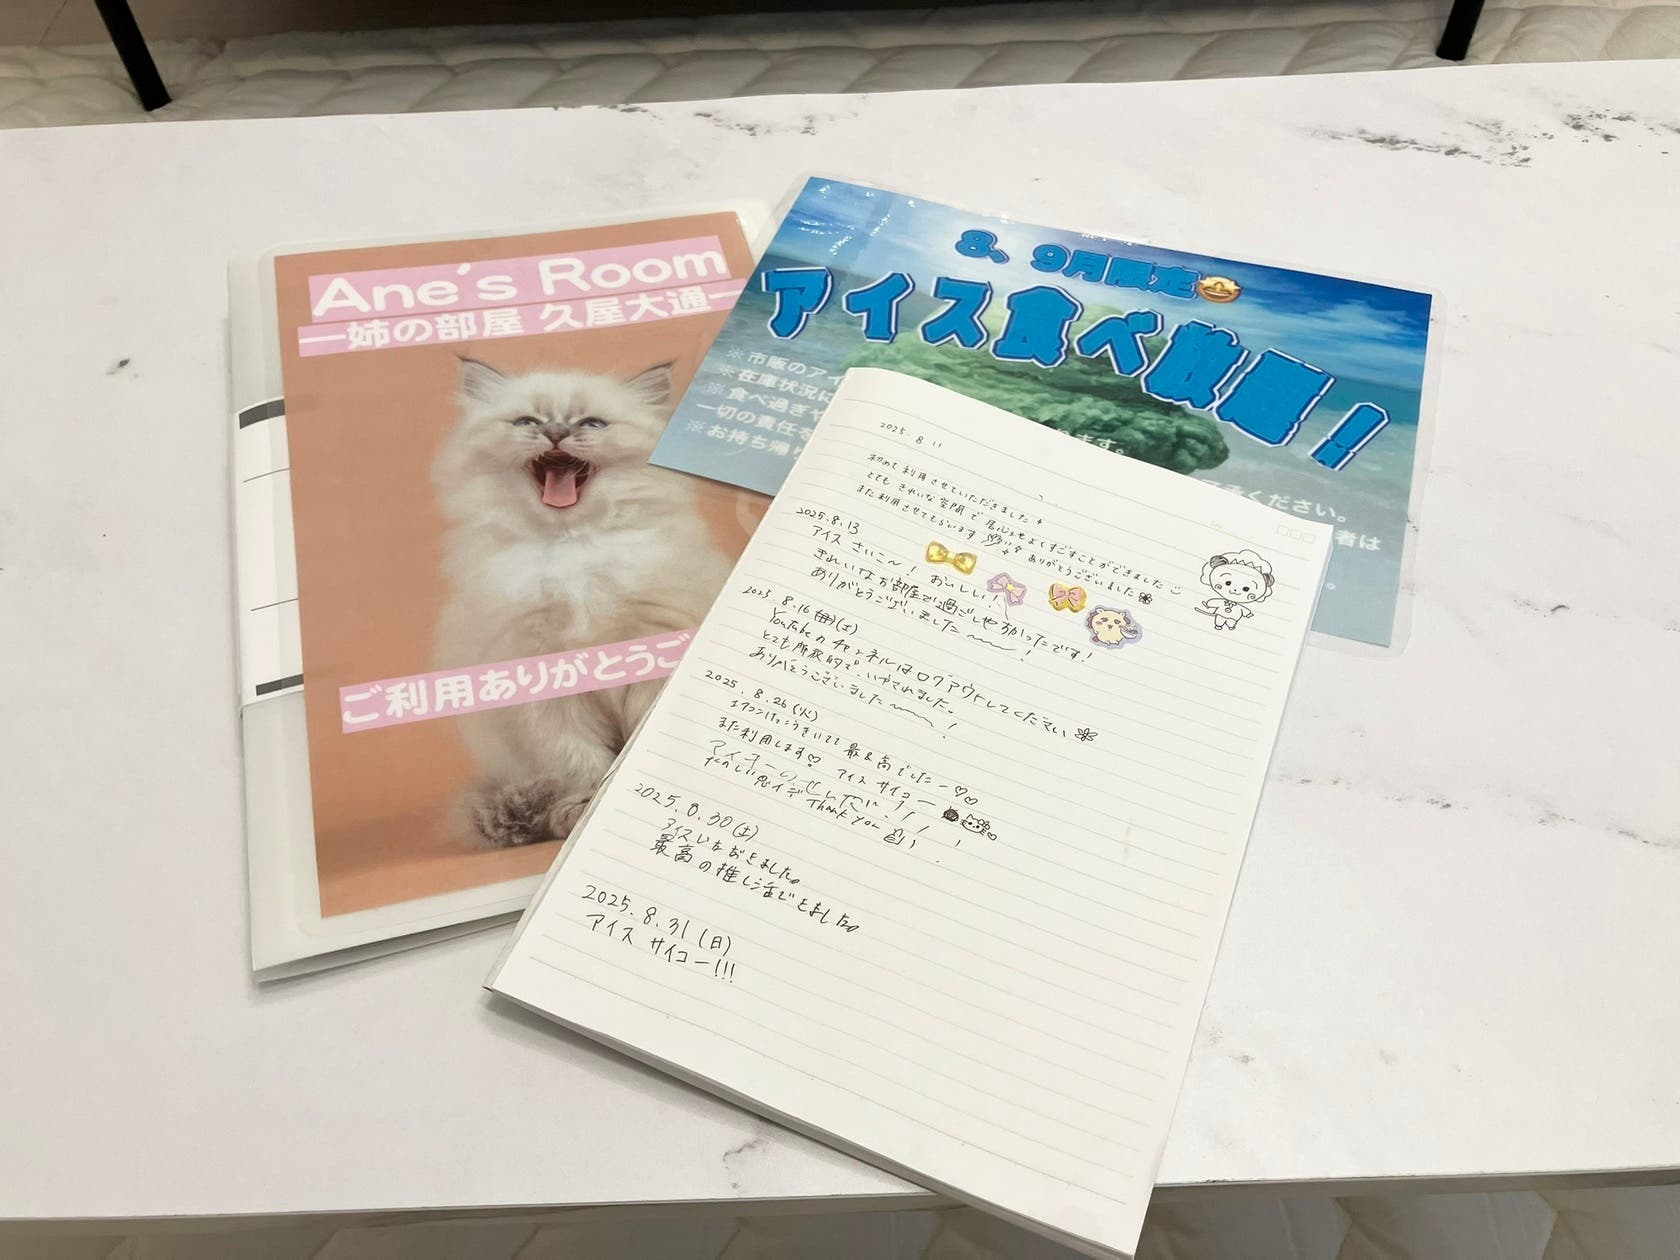 Ane's Room
―姉の部屋 久屋大通―
ご利用ありがとうご
8、9月限定
アイス食べ放題！
※市販のアイ
※在庫状況に
ます。
※食べ過ぎや
一切の責任を
了承ください。
※お持ち帰り
者は
2025.8.11
初めて利用させていただきました
とてもきれいな空間で居心地よくすごすことができました
また利用させてもらいます ありがとうございました
2025.8.13
アイスさいこ〜！おいしい！
きれいなお部屋で過ごしやすかったです！
ありがとうございました〜！
2025.8.16(土)
YouTubeのチャンネルはログアウトしてください
とても開放的で、いやされました。
ありがとうございました〜！
2025.8.26(火)
エアコンけっこうきいてて最&高でしたー♡♡
また利用します♡ アイス サイコー
Thank you
2025.8.30(土)
最高の推し活できました。
2025.8.31(日)
アイス サイコー!!!